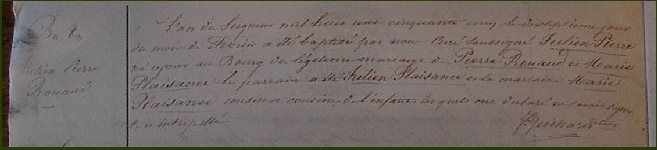 Bn 8n
Julien Pierre
Rouaud
L'an du Seigneur mil huit cent cinquante cinq, le dix septieme jour
du mois de Février a été baptisé par nous Curé Soussigné Julien Pierre
né ce jour du Bourg du légitime mariage de Pierre Rouaud et Marie
Plaisance le parrain a été Julien Plaisance et la marraine Marie
Plaisance cousin et cousine de l'enfant lesquels ont déclaré ne savoir signer
de ce interpellés
Guihard